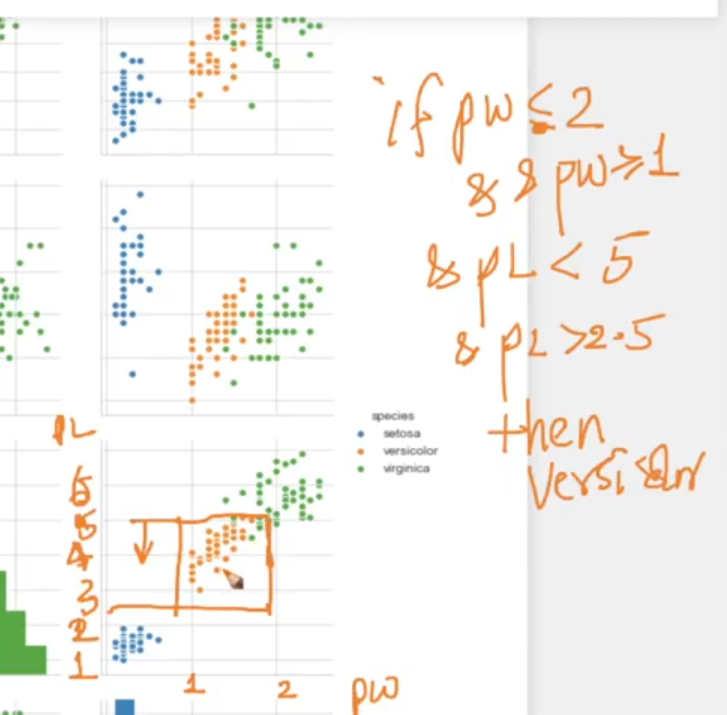 if pw ≤ 2
& & pw ≥ 1
& pL < 5
& pL > 2.5
then
versicolor
species
setosa
versicolor
virginica
PL
6
5
4
3
2
1
1 2 pw